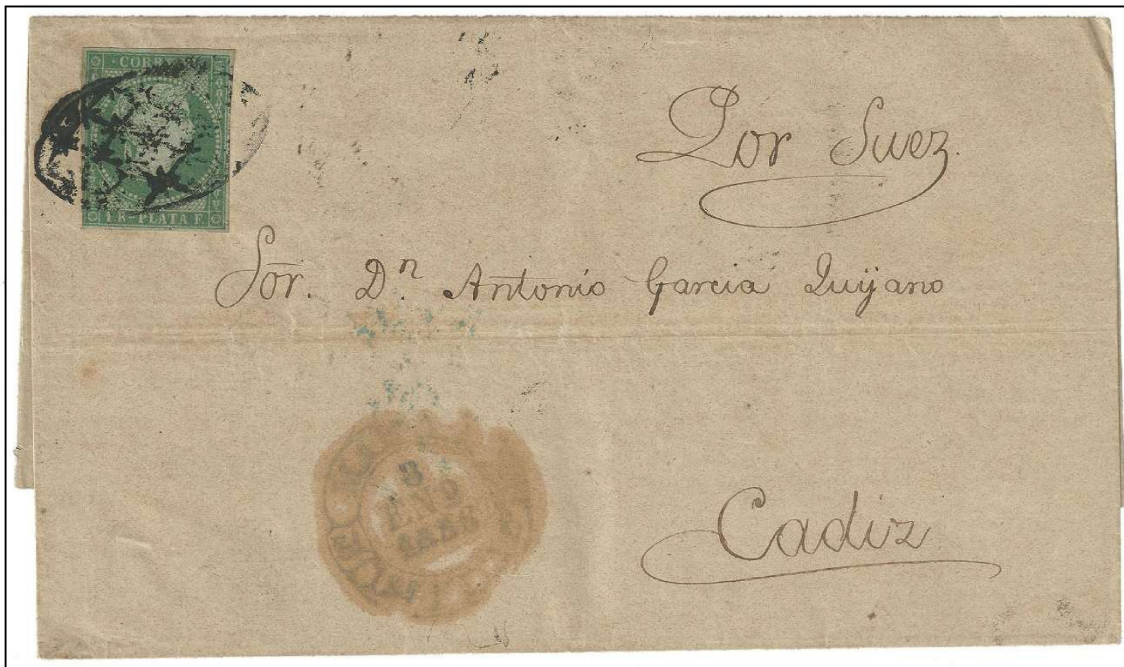 CORR
1 R- PLATA F.
Por Suez.
Sor. Dn. Antonio Garcia Quijano
ENO
Cadiz